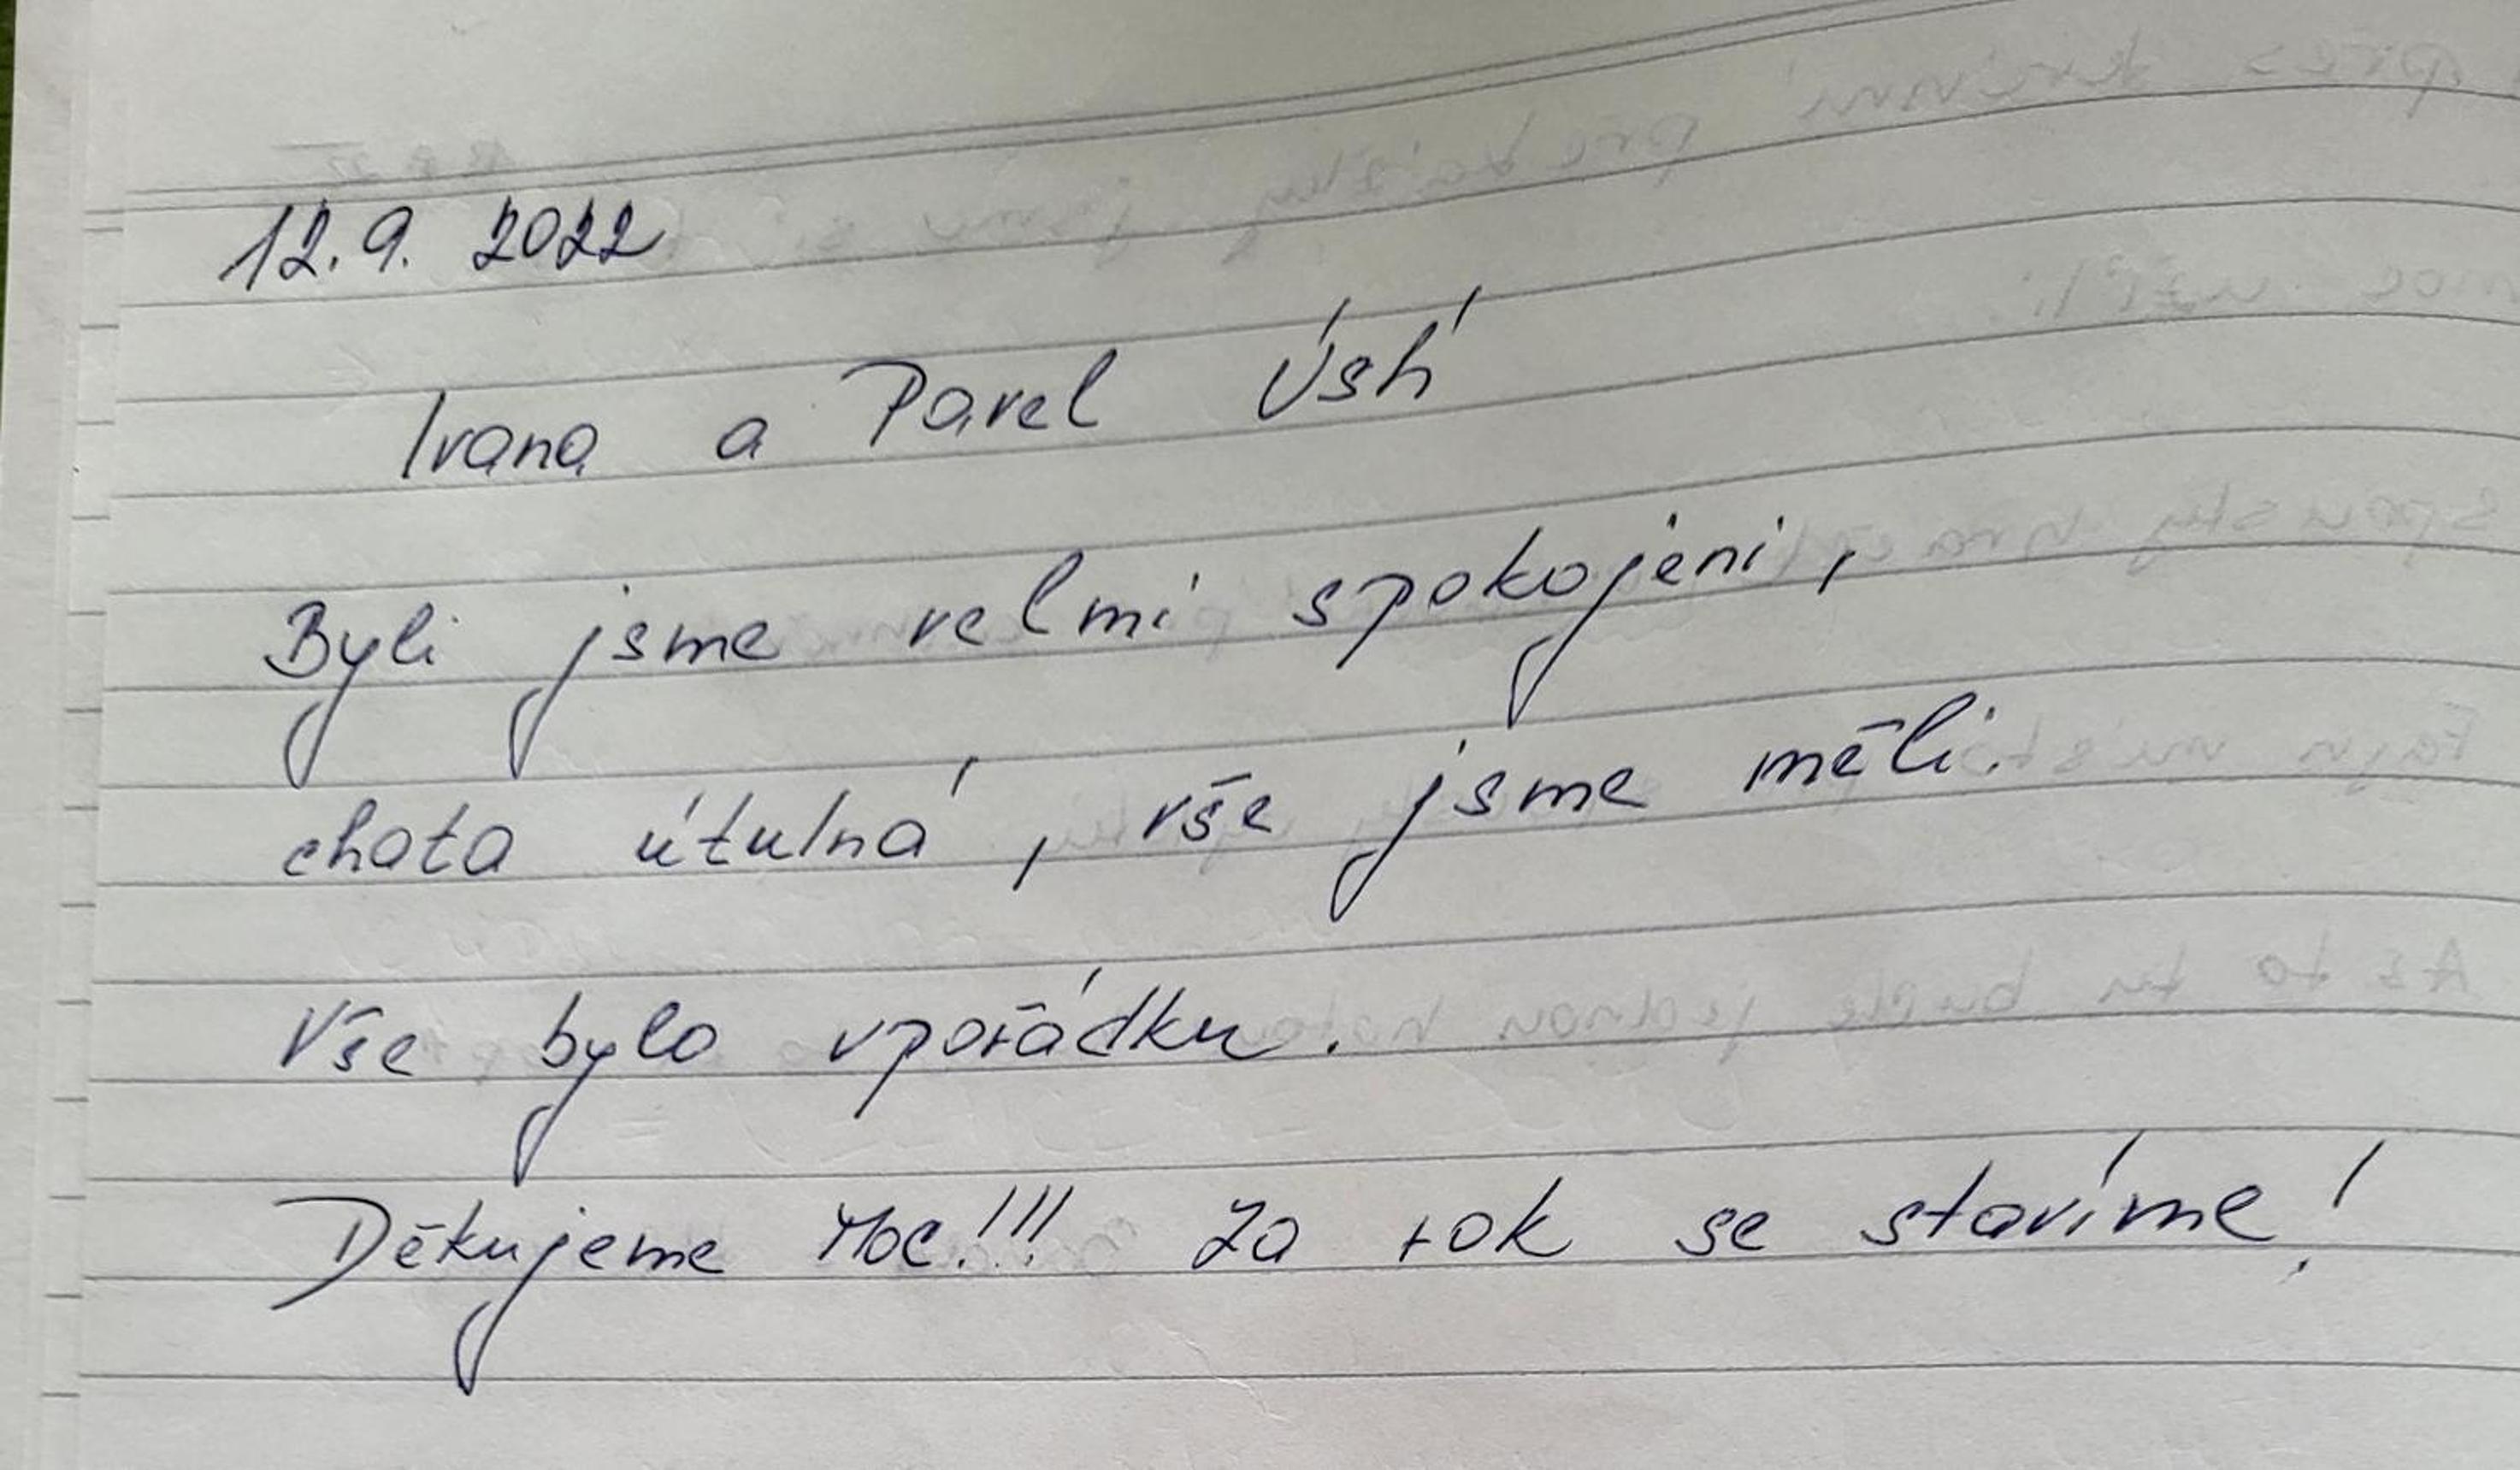 12.9. 2022
Ivana a Pavel Ústí
Byli jsme velmi spokojeni,
chata útulná, vše jsme měli.
Vše bylo vpořádku.
Děkujeme Moc!!! Za rok se stavíme!